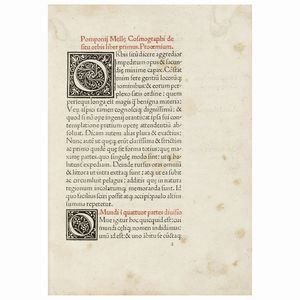 Pomponij Mellę Cosmographi de
situ orbis liber primus. Prooemium.
ORbis situm dicere aggredior
impeditum opus & facun-
diæ minime capax. Constat
enim fere gentium locorumq;
nominibus & eorum per-
plexo satis ordine: quem
persequi longa est magis q̃ benigna materia:
Verum aspici tamen cognosciq; dignissimum: &
quod si non ope ingenii orantis: at ipsa sui
contemplatione precium operę attendentibus
absoluat. Dicam autem alias plura & exactius:
Nunc aut
tum. Ac primo quidem quæ sit forma totius: quæ
maximæ partes: quo singulæ modo sint: utq; ha-
bitent expediam. Deinde rursus oras omnium
& litora ut intra extraq; sunt: atq; ut ea subit
ac circumluit pelagus: additis quę in natura
regionum incolarumq; memoranda sunt. Id
quo facilius sciri possit atq; accipi paulo altius
summa repetetur.
Mundi in quattuor partes diuisio
OMne igitur hoc quicquid est: cui
mundi cęliq; nomen indidimus:
unum id est: & uno ambitu se cunctaq;